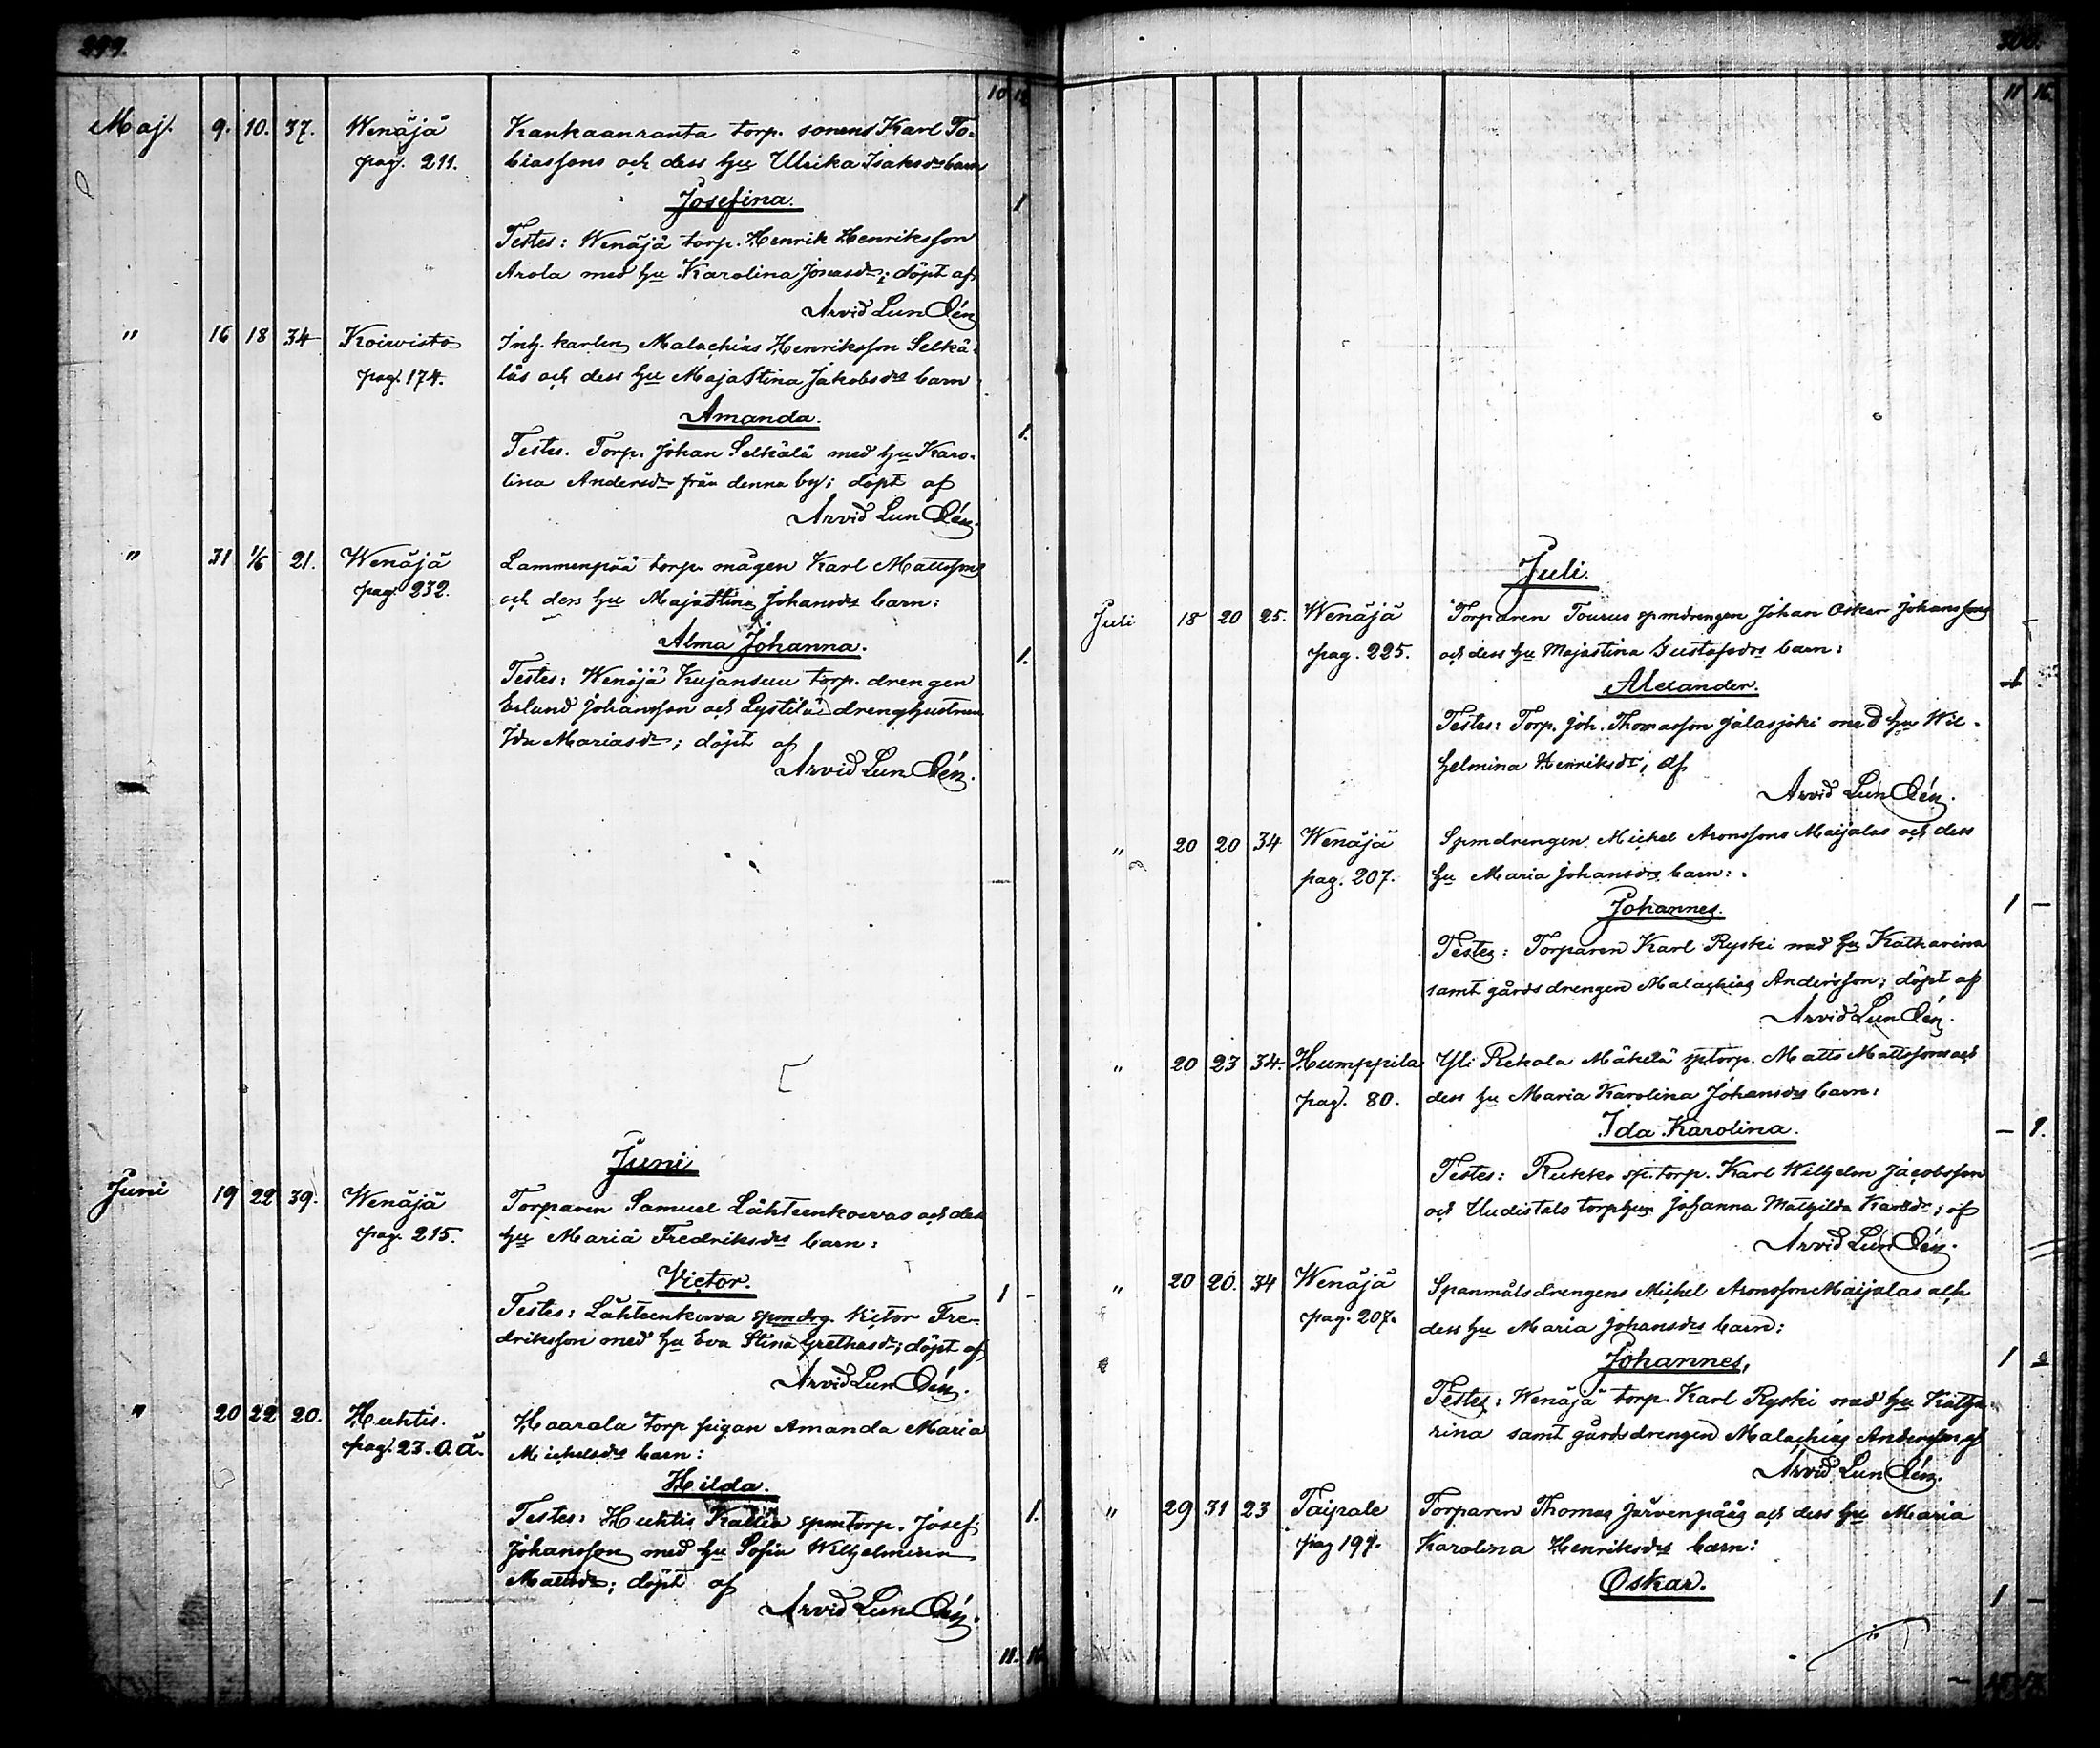 299.
10 14
Maj. 9. 10. 37. Wenäjä Kankaanranta torp. sonens Karl To-
pag. 211. biassons och dess hu Ulrika Isaksdrs barn
Josefina. 1
Testes: Wenäjä torp. Henrik Henriksson
Arola med hu Karolina Josuasdr; döpt af
Arvid Lundén
" 16 18 34 Koiwisto Inh. karlen Malachias Henriksson Selkä-
pag. 174. läs och dess hu Maja Stina Jakobsdrs barn
Amanda. 1.
Testes. Torp. Johan Selkälä med hu Karo-
lina Andersdr från denna by; döpt af
Arvid Lundén.
" 31 1/6 21. Wenäjä Lammenpää torp. mågen Karl Mattssons
pag. 232. och dess hu Maja Stina Johansdrs barn:
Alma Johanna. 1.
Testes: Wenäjä Kujansuu torp. drengen
Erland Johansson och drenghustrun
Ida Mariasdr; döpt af
Arvid Lundén.
Juni
Juni 19 22 39. Wenäjä Torparen Samuel Lähteenkorvas och dess
pag. 215. hu Maria Fredriksdrs barn:
Victor. 1 -
Testes: Lähteenkorva spmdrg. Victor Fre-
driksson med hu Eva Stina Grethasdr; döpt af
Arvid Lundén.
" 20 22 20. Huhtis. Haarala torp pigan Amanda Maria
pag. 23. O.Ä. Michelsdrs barn:
Hilda. 1.
Testes: Huhtis spmtorp. Josef
Johansson med hu Sofia Wilhelmina
Mattsdr; döpt af
Arvid Lundén.
11. 16
300.
11 16.
Juli.
Juli 18 20 25. Wenäjä Torparen Tourus spmdrengen Johan Oskar Johanssons
pag. 225. och dess hu Majastina Gustafsdrs barn:
Alexander. 1
Testes: Torp. Joh. Thomasson Jalasjoki med hu Wil-
helmina Henriksdr; af
Arvid Lundén.
" 20 20 34 Wenäjä Spmdrengen Michel Aronssons Maijalas och dess
pag. 207. hu Maria Johansdrs barn:
Johannes. 1 -
Testes: Torparen Karl Ryski med hu Katharina
samt gårdsdrengen Malachias Andersson; döpt af
Arvid Lundén.
" 20 23 34. Humppila Yli Rekola Mäkelä sptorp. Matts Mattssons och
pag. 80. dess hu Maria Karolina Johansdrs barn:
Ida Karolina. - 1.
Testes: Rukko sp. torp. Karl Wilhelm Jacobsson
och Uudistalo torphun Johanna Mathilda Karlsdr; af
Arvid Lundén.
" 20 20. 34 Wenäjä Spanmålsdrengens Michel Aronsson Maijalas och
pag. 207. dess hu Maria Johansdrs barn:
Johannes, 1
Testes: Wenäjä torp. Karl Ryski med hu Katha-
rina samt gårdsdrengen Malachias Andersson, af
Arvid Lundén.
" 29 31 23 Taipale Torparen Thomas Järvenpääs och dess hu Maria
pag 197. Karolina Henriksdrs barn:
Oskar. 1 -